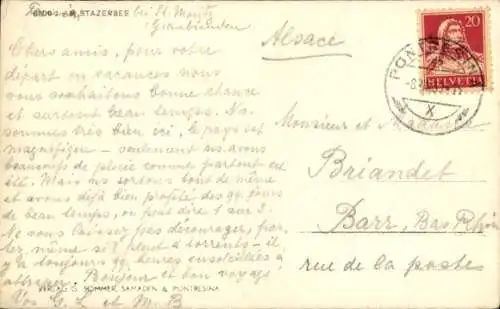 STAZERSEE bei St. Moritz
Graubünden
Chers amis, pour votre
départ en vacances nous
vous souhaitons bonne chance
et surtout beau temps. Ns.
sommes très bien ici, le pays est
magnifique - seulement ns. avons
beaucoup de pluie comme partout cet
été. Mais ns sortons tout de même
et avons déjà bien profité des qq. jours
de beau temps, on peut dire 1 sur 3.
Ne vous laissez pas décourager, par-
tez même s'il pleut à torrents - il
y a toujours qq. heures ensoleillées à
attraper. Bonjour et bon voyage!
Vos G. L. et M. B
VERLAG G. SOMMER, SAMADEN & PONTRESINA
Alsace
20
HELVETIA
PONTRESINA
X
Monsieur et Madame
Briandet
Barr, Bas Rhin
rue de la poste